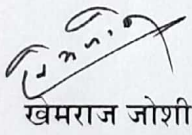 खेमराज जोशी